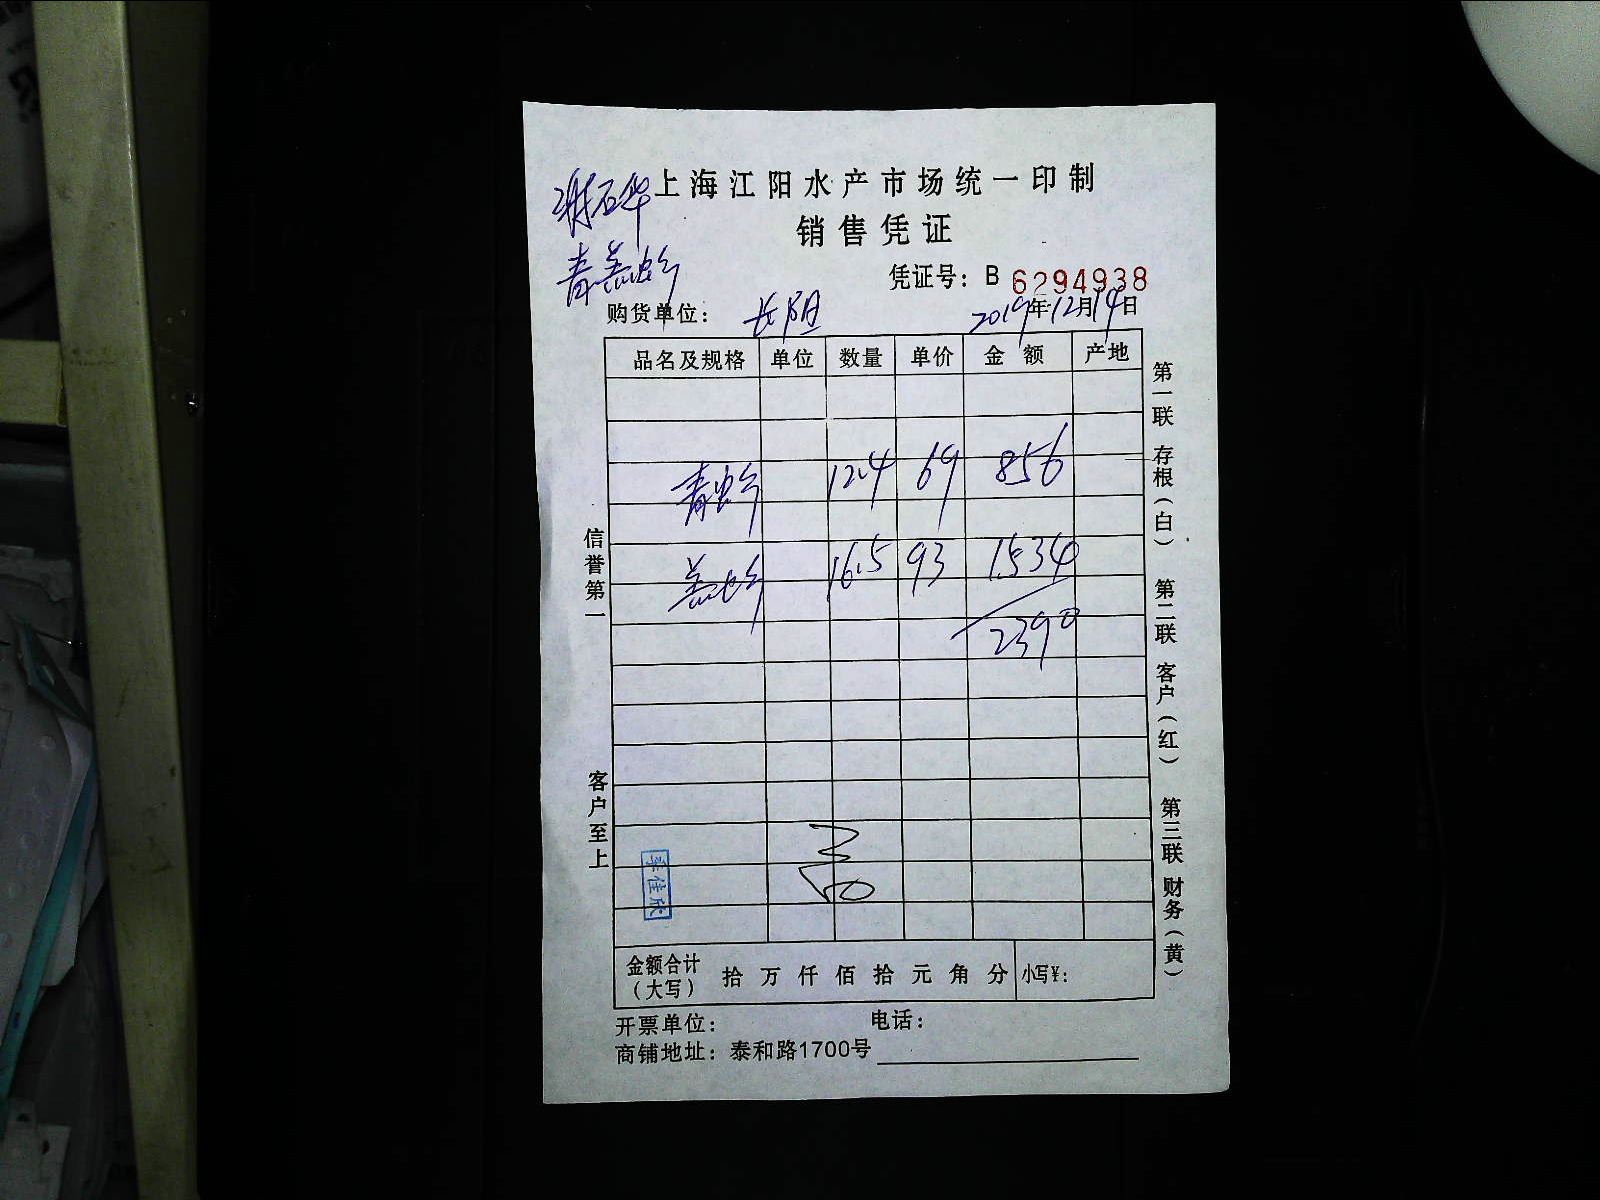 谢石华
上海江阳水产市场统一印制
销售凭证
青盖虾
凭证号：B 6294938
购货单位：长阳 2019年12月14日
品名及规格 单位 数量 单价 金额 产地
青虾 12.4 69 856
盖虾 16.5 93 1534
2390
信誉第一
客户至上
第一联 存根（白） 第二联 客户（红） 第三联 财务（黄）
李佳欣
金额合计（大写） 拾 万 仟 佰 拾 元 角 分 小写¥：
开票单位： 电话：
商铺地址：泰和路1700号